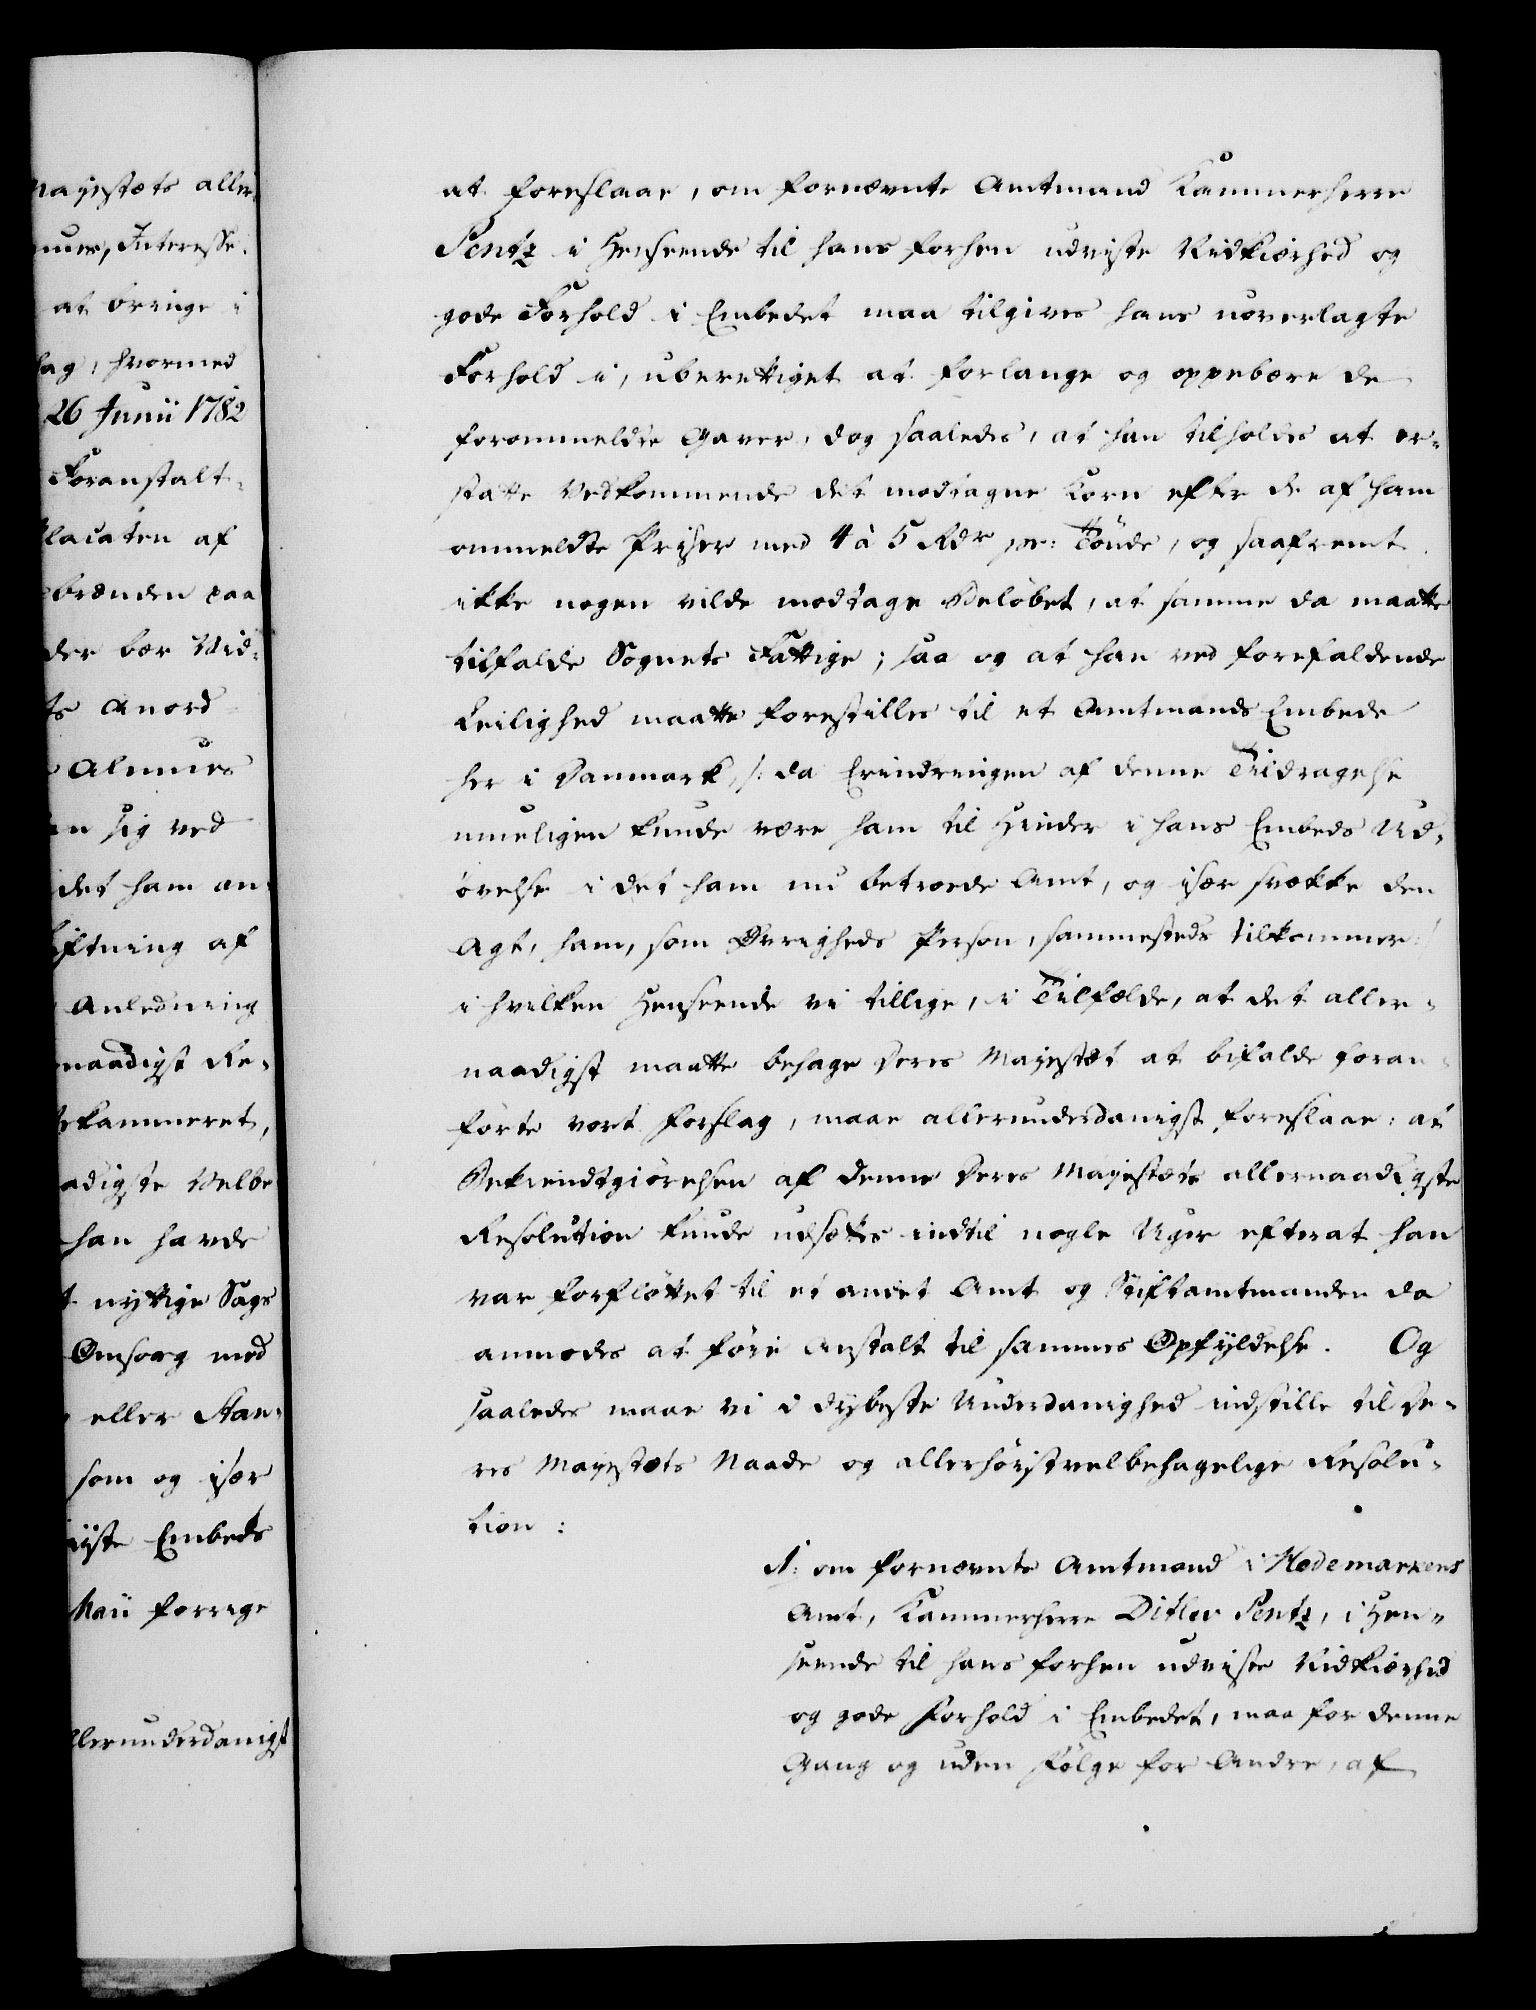 Mayestæts aller
muer, Interesse.
at bringe i
slag, hvormed
26 Junii 1782
Foranstalt-
Placaten af
brænden paa
der bær Vid-
ts Anord
Almues
an sig ved
det ham an-
iftning af
Anledning
naadigst Re-
tekammeret,
adigste Velbe
han havde
t nyttige Sags
Omsorg med
eller Stan-
som og især
iiste Embeds
Maii forrige
llerunderdanigst
at foreslaae, om fornævnte Amtmand Kammerherre
Pentz i Henseende til hans forhen udviste Nidkiærhed og
gode Forhold i Embedet maa tilgives hans uoverlagte
Forhold i, uberettiget at forlange og oppebære de
forommeldte Gaver, dog saaledes, at han tilholdes at er-
statte Vedkommende det modtagne Korn efter de af ham
ommeldte Priser med 4 à 5 Rdr pr: Tönde, og saafremt
ikke nogen vilde modtage Beløbet, at samme da maatte
tilfalde Sognets Fattige; saa og at han ved forefaldende
Leilighed maatte forestilles til et Amtmands Embede
her i Danmark, /: da Erindringen af denne Tildragelse
mueligen kunde være ham til Hinder i hans Embeds Ud-
øvelse i det ham nu betroede Amt, og især svække den
Agt, ham, som Øvrigheds Person, sammesteds tilkommer :/
i hvilken Henseende vi tillige, i Tilfælde, at det aller-
naadigst maatte behage Deres Mayestæt at bifalde foran-
førte vort Forslag, maae allerunderdanigst foreslaae: at
Bekiendtgiörelsen af denne Deres Mayestæts allernaadigste
Resolution kunde udsættes indtil nogle Uger efterat han
var forfløttet til et andet Amt og Stiftamtmanden da
anmodes at föie Anstalt til sammes Opfyldelse. Og
saaledes maae vi i dybeste Underdanighed indstille til De-
res Mayestæts Naade og allerhöistvelbehagelige Resolu-
tion:
1: om fornævnte Amtmand i Hedemarkens
Amt, Kammerherre Ditlev Pentz, i Hen-
seende til hans forhen udviste Nidkiærhed
og gode Forhold i Embedet, maa for denne
Gang og uden Følge for Andre, af